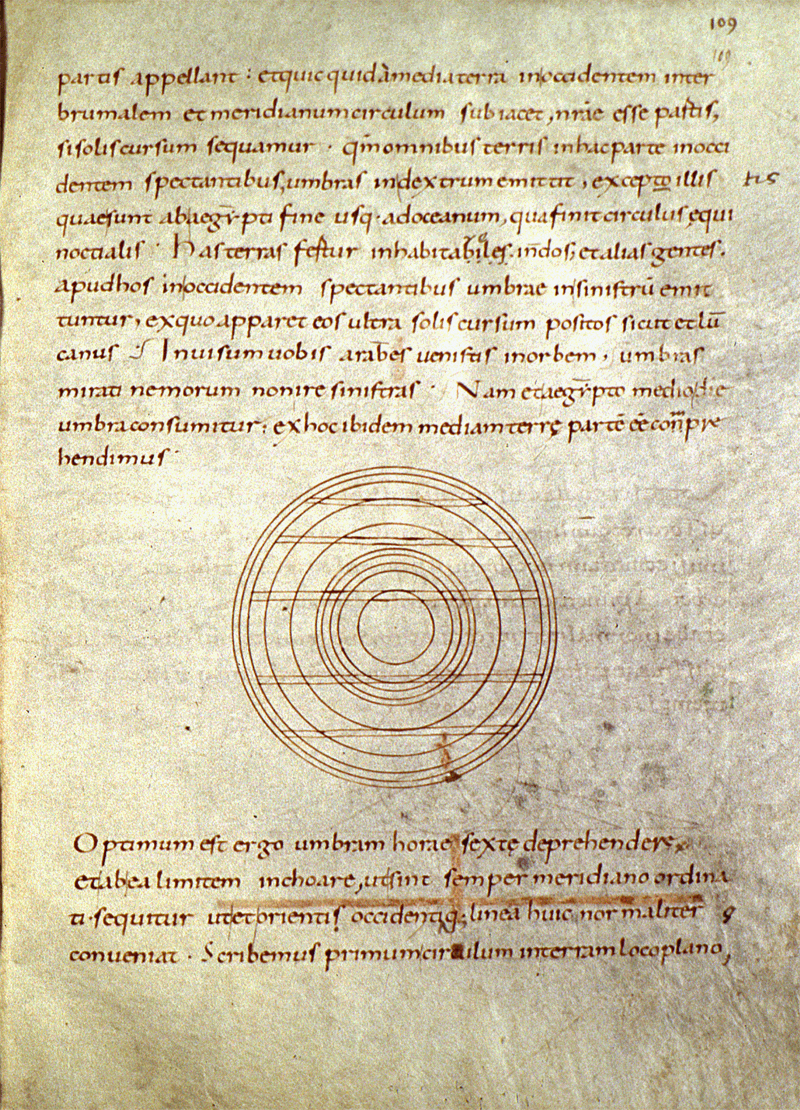 109
119
partis appellant : et quicquid a media terra in occidentem inter
brumalem et meridianum circulum subiacet, nrae esse partis,
si solis cursum sequamur · qm omnibus terris in hac parte in occi
dentem spectantibus, umbras in dextrum emittit, excepto illis tis
quae sunt ab aegypti fine usq· ad oceanum, qua finit circulus equi
noctialis · Has terras fertur inhabitabiles. indos, et alias gentes.
Apud hos in occidentem spectantibus umbrae in sinistrū emit
tuntur, ex quo apparet eos ultra solis cursum positos sicut et lū
canus · Inuisum uobis arabes uenistis in orbem, umbras
mirati nemorum non ire sinistras · Nam et aegypto medio die
umbra consumitur; ex hoc ibidem mediam terrę partē eē conpre
hendimus ·
Optimum est ergo umbram horae sextę deprehendere,
et ab ea limitem inchoare, ut sint semper meridiano ordina
ti · sequitur ut et orientis occidentisq; linea huic normaliter
conueniat · Scribemus primum circulum in terram loco plano,